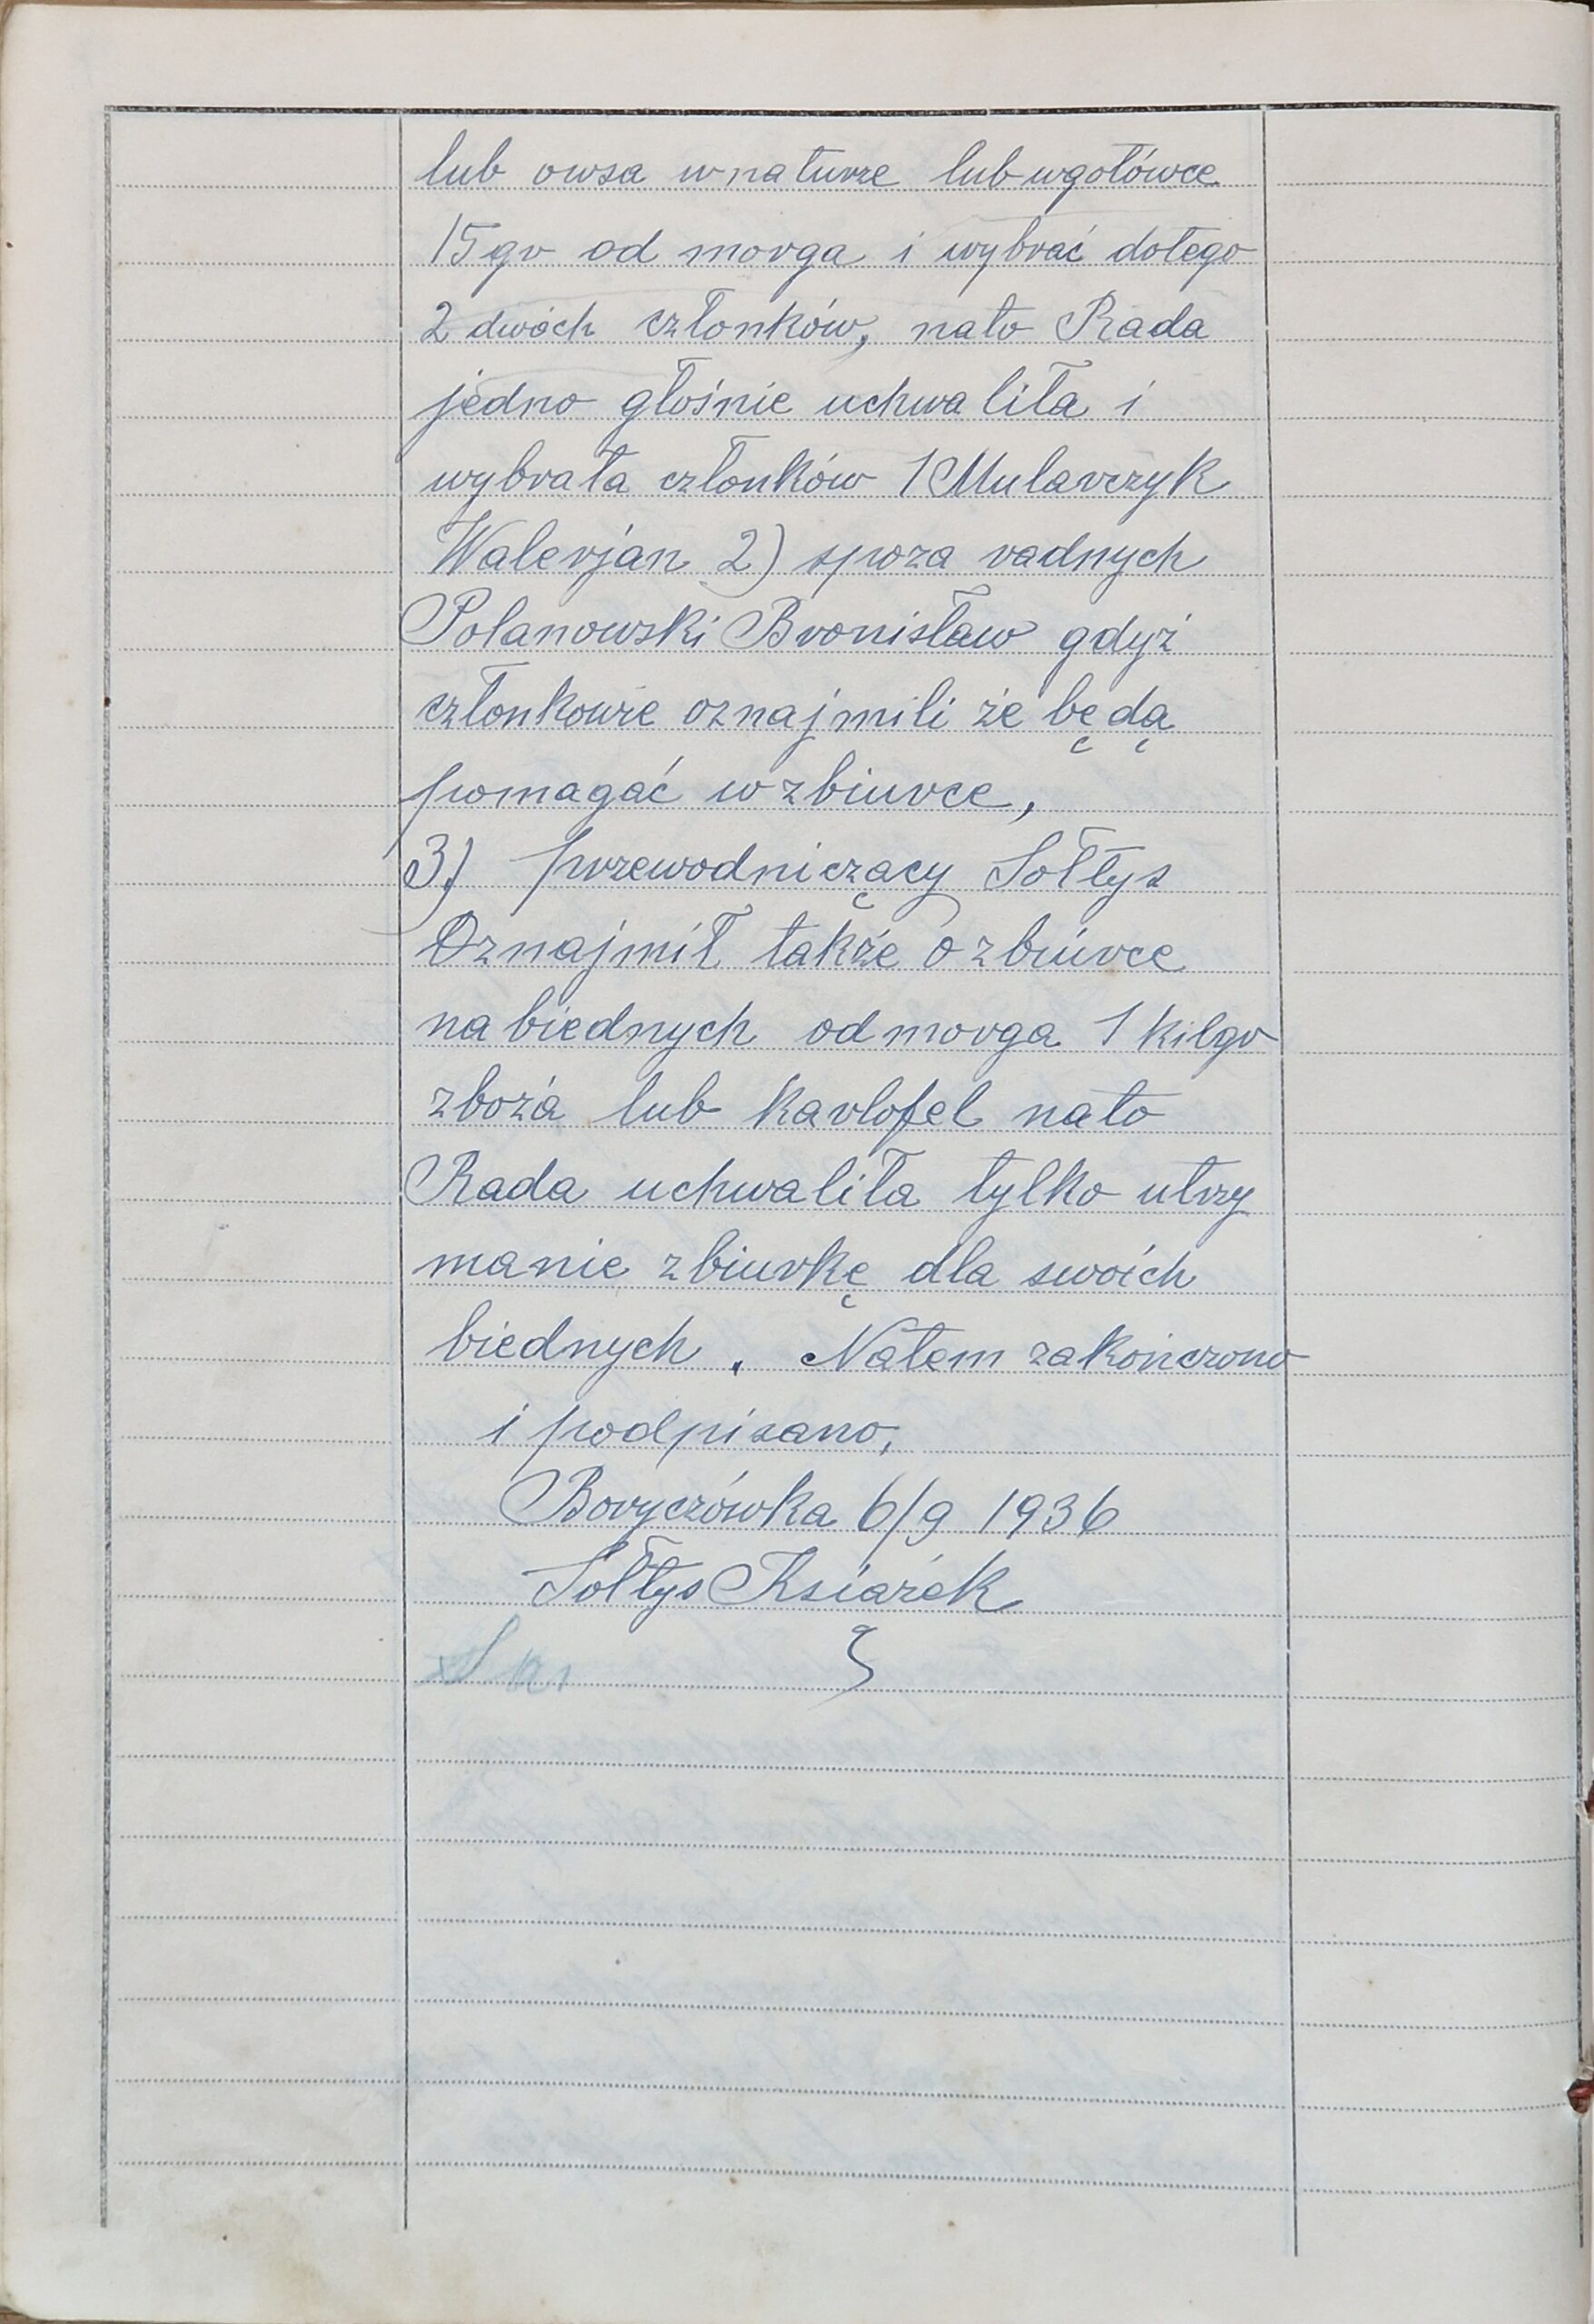 lub owsa w naturze lub wgotówce
15 gr od morga i wybrać dotego
2 dwóch członków, nato Rada
jedno głośnie uchwaliła i
wybrała członków 1 Mularczyk
Walerjan 2) spoza radnych
Polanowski Bronisław gdyż
członkowie oznajmili że będą
pomagać w zbiurce,
3) przewodniczący Sołtys
Oznajmił także o zbiurce
na biednych od morga 1 kilgr
zboża lub kartofel nato
Rada uchwaliła tylko utrzy
manie zbiurkę dla swoich
biednych. Natem zakończono
i podpisano,
Boryczówka 6/9 1936
Sołtys Książek